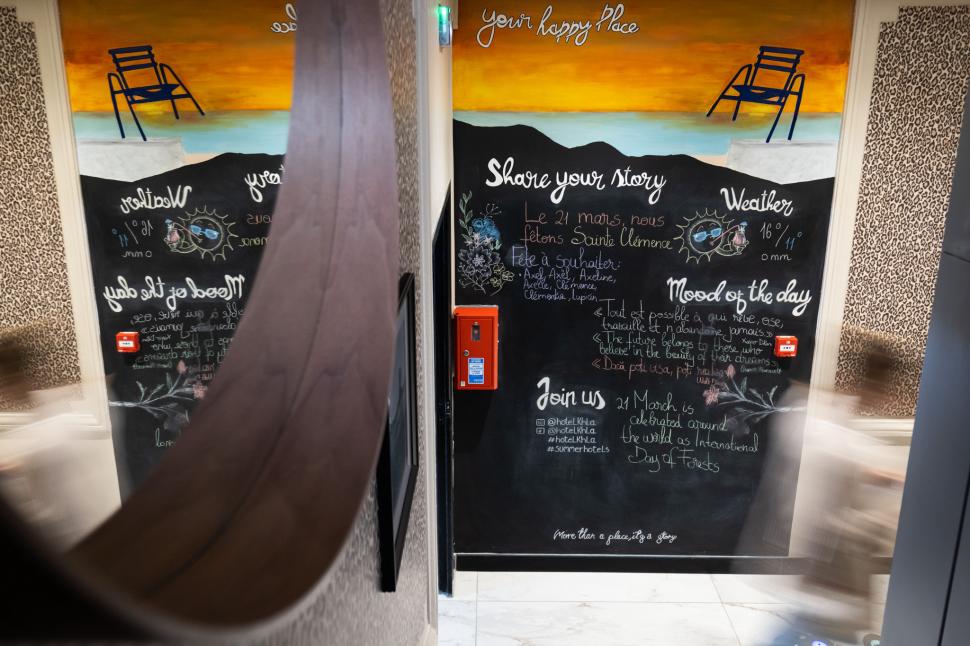 Your happy Place
Share your story
Le 21 mars, nous
fêtons Sainte Clémence
Fête à souhaiter:
Axel, Axël, Axeline,
Axelle, Clémence,
Clémentia, Lupicin
Weather
16°/11°
0 mm
Mood of the day
«Tout est possible à qui rêve, ose,
travaille et n'abandonne jamais»
«The future belongs to those who
believe in the beauty of their dreams»
«Dacă poti visa, poti
Join us
@hotel.Khla
@hotel.Kh.la
#hotelKhla
#summerhotels
21 March is
celebrated around
the world as International
Day of Forests
More than a place, it's a story